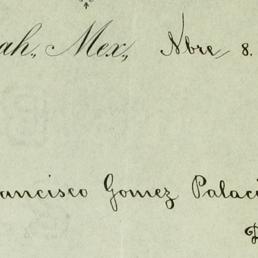 ah., Mex., Nbre 8.
ancisco Gomez Palaci